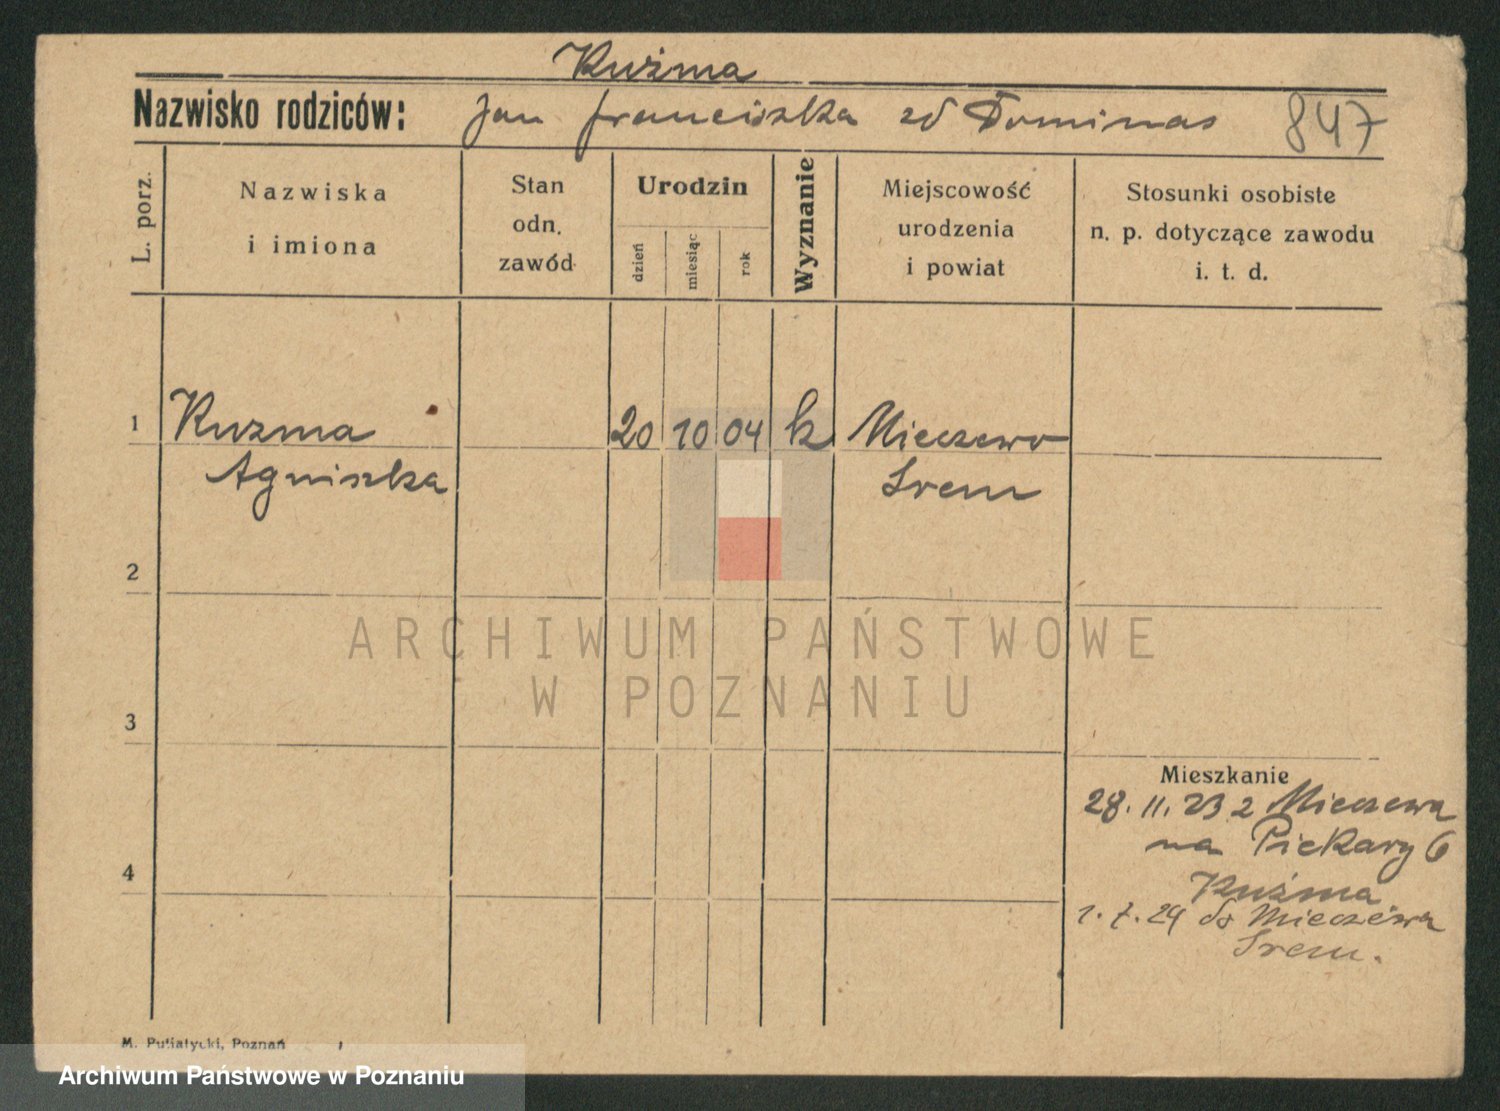 Kuźma
Nazwisko rodziców: Jan Franciszka zd Dominas 847
L. porz.
Nazwiska
i imiona
Stan
odn.
zawód
Urodzin
dzień
miesiąc
rok
Wyznanie
Miejscowość
urodzenia
i powiat
Stosunki osobiste
n. p. dotyczące zawodu
i. t. d.
1 Kuzma 20 10 04 k Mieczewo
Agniszka Srem
2
3
4
Mieszkanie
28. 11. 23 z Mieczewa
na Piekary 6
Kuźma
1. 7. 24 do Mieczewa
Srem.
M. Putiatycki, Poznań
ARCHIWUM PAŃSTWOWE
W POZNANIU
Archiwum Państwowe w Poznaniu